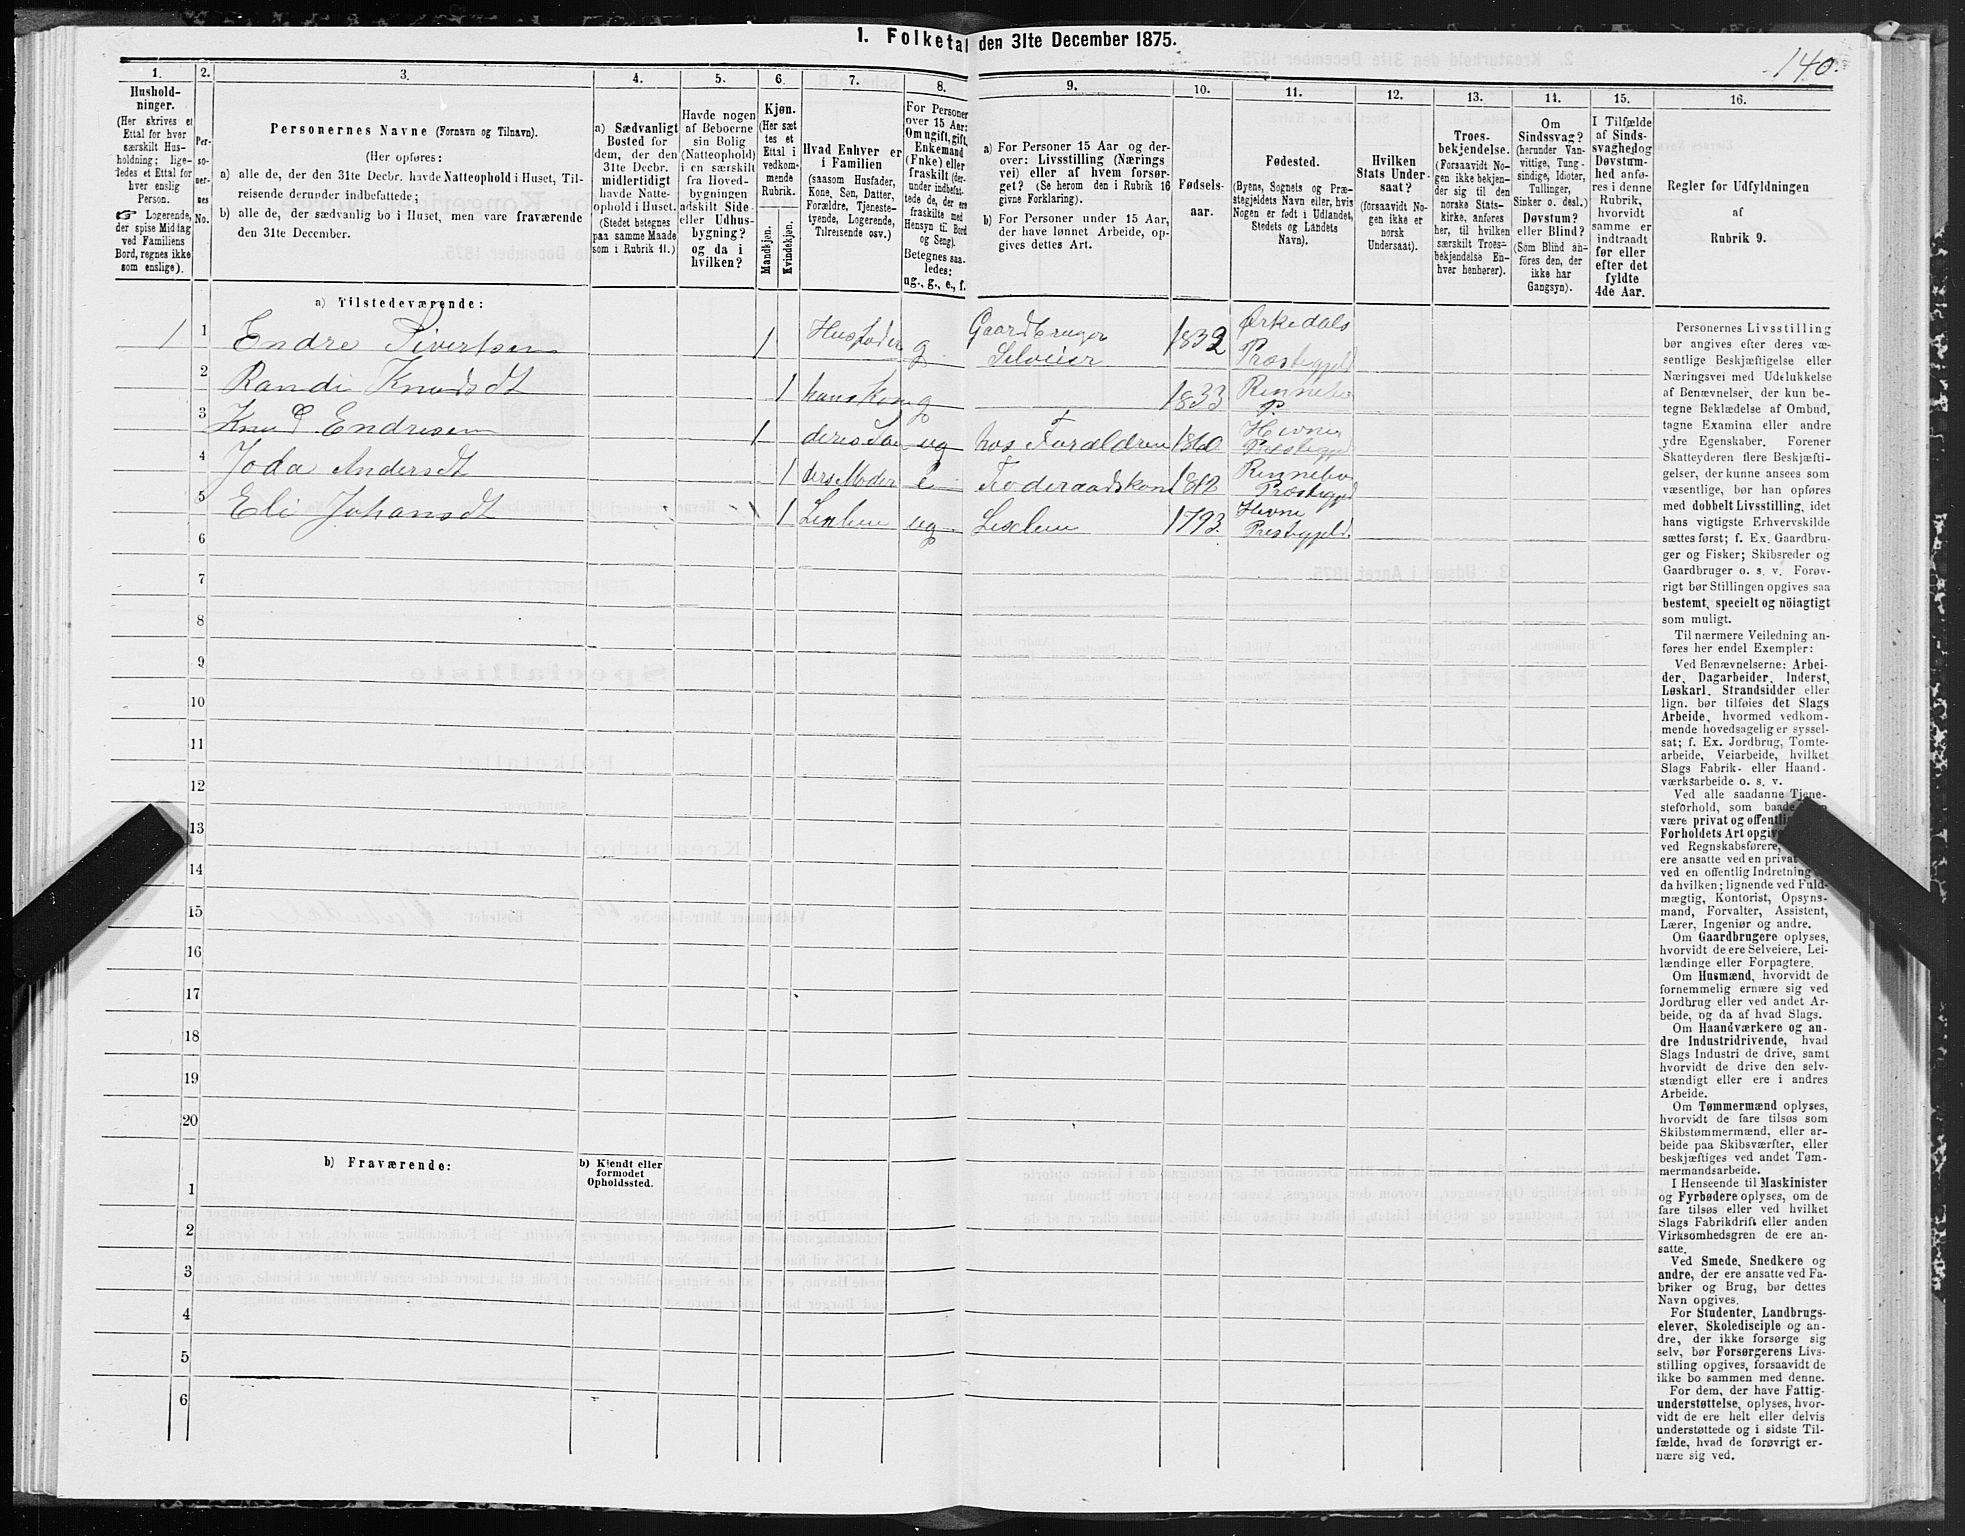 1. Folketal den 31te December 1875.
140.
1.
Husholdninger.
(Her skrives et
Ettal for hver
særskilt Husholdning; ligeledes
et Ettal for
hver enslig
Person.
☞ Logerende,
der spise Middag
ved Familiens
Bord, regnes ikke
som enslige).
2.
Personernes
No.
3.
Personernes Navne (Fornavn og Tilnavn).
(Her opføres:
a) alle de, der den 31te Decbr. havde Natteophold i Huset, Tilreisende
derunder indbefattede;
b) alle de, der sædvanlig bo i Huset, men vare fraværende
den 31te December.
4.
a) Sædvanligt
Bosted for
dem, der den
31te Decbr.
midlertidigt
havde Natteophold
i Huset.
(Stedet betegnes
paa samme Maade
som i Rubrik 11.)
5.
Havde nogen
af Beboerne
sin Bolig
(Natteophold)
i en særskilt
fra Hovedbygningen
adskilt Side-
eller Udhusbygning?
og da i
hvilken?
6.
Kjøn.
(Her sættes
et
Ettal i
vedkommende
Rubrik.
Mandkjøn.
Kvindekjøn.
7.
Hvad Enhver er
i Familien
(saasom Husfader,
Kone, Søn, Datter,
Forældre, Tjenestetyende,
Logerende,
Tilreisende osv.)
8.
For Personer
over 15 Aar:
Om ugift, gift,
Enkemand
(Enke) eller
fraskilt (derunder
indbefattede
de, der ere
fraskilte med
Hensyn til Bord
og Seng).
Betegnes saaledes:
ug., g., e., f.
9.
a) For Personer 15 Aar og derover:
Livsstilling (Næringsvei)
eller af hvem forsørget?
(Se herom den i Rubrik 16
givne Forklaring).
b) For Personer under 15 Aar,
der have lønnet Arbeide, opgives
dettes Art.
10.
Fødselsaar.
11.
Fødested.
(Byens, Sognets og Præstegjeldets
Navn eller, hvis
Nogen er født i Udlandet,
Stedets og Landets
Navn).
12.
Hvilken
Stats Undersaat?
(forsaavidt Nogen
ikke er
norsk
Undersaat).
13.
Troesbekjendelse.
(Forsaavidt Nogen
ikke bekjender
sig til den
norske Statskirke,
anføres
her, til hvilken
særskilt Troesbekjendelse
Enhver
henhører).
14.
Om
Sindssvag?
(herunder Vanvittige,
Tungsindige,
Idioter,
Tullinger,
Sinker o. desl.)
Døvstum?
eller Blind?
(Som Blind anføres
den, der
ikke har
Gangsyn).
15.
I Tilfælde
af Sindssvaghed
og
Døvstumhed
anføres
i denne
Rubrik,
hvorvidt
samme er
indtraadt
før eller
efter det
fyldte
4de Aar.
16.
Regler for Udfyldningen
af
Rubrik 9.
a) Tilstedeværende:
1 1 Endre Sivertsen 1 Husfader g Gaardbruger Selveier 1832 Ørkedals Præstegjeld
2 Randi Knudsdt 1 hans Kone g 1833 Rennebo P
3 Knud Endresen 1 deres Søn ug hos Forældrene 1860 Hevne Præstegjeld
4 Joda Andersdt 1 ders Moder e Føderaadskone 1812 Rennebo Præstegjeld
5 Eli Johansdt 1 Leilem ug Leilem 1793 Hevne Prestegjeld.
6
7
8
9
10
11
12
13
14
15
16
17
18
19
20
b) Fraværende:
b) Kjendt eller
formodet
Opholdssted.
1
2
3
4
5
6
Personernes Livsstilling
bør angives efter deres væsentlige
Beskjæftigelse eller
Næringsvei med Udelukkelse
af Benævnelser, der kun betegne
Beklædelse af Ombud,
tagne Examina eller andre
ydre Egenskaber. Forener
Skatteyderen flere Beskjæftigelser,
der kunne ansees som
væsentlige, bør han opføres
med dobbelt Livsstilling, idet
hans vigtigste Erhvervskilde
sættes først; f. Ex. Gaardbruger
og Fisker; Skibsreder og
Gaardbruger o. s. v. Forøvrigt
bør Stillingen opgives saa
bestemt, specielt og nöiagtigt
som muligt.
Til nærmere Veiledning anføres
her endel Exempler:
Ved Benævnelserne: Arbeider,
Dagarbeider, Inderst,
Løskarl, Strandsidder eller
lign. bør tilføies det Slags
Arbeide, hvormed vedkommende
hovedsagelig er sysselsat;
f. Ex. Jordbrug, Tomtearbeide,
Veiarbeide, hvilket
Slags Fabrik- eller Haandværksarbeide
o. s. v.
Ved alle saadanne Tjenesteforhold,
som baade
være privat og offentlig
Forholdets Art opgives
ved Regnskabsførere,
ere ansatte ved en privat
ved en offentlig Indretning
da hvilken; lignende ved Fuldmægtig,
Kontorist, Opsynsmand,
Forvalter, Assistent,
Lærer, Ingeniør og andre.
Om Gaardbrugere oplyses,
hvorvidt de ere Selveiere, Leilændinge
eller Forpagtere.
Om Husmænd, hvorvidt de
fornemmelig ernære sig ved
Jordbrug eller ved andet Arbeide,
og da af hvad Slags.
Om Haandværkere og andre
Industridrivende, hvad
Slags Industri de drive, samt
hvorvidt de drive den selvstændigt
eller ere i andres
Arbeide.
Om Tømmermænd oplyses,
hvorvidt de fare tilsøs som
Skibstømmermænd, eller arbeide
paa Skibsværfter, eller
beskjæftiges ved andet Tømmermandsarbeide.
I Henseende til Maskinister
og Fyrbødere oplyses, om de
fare tilsøs eller ved hvilket
Slags Fabrikdrift eller anden
Virksomhedsgren de ere ansatte.
Ved Smede, Snedkere og
andre, der ere ansatte ved Fabriker
og Brug, bør dettes
Navn opgives.
For Studenter, Landbrugselever,
Skoledisciple og andre,
der ikke forsørge sig
selv, bør Forsørgerens Livsstilling
opgives, forsaavidt de
ikke bo sammen med denne.
For dem, der have Fattigunderstøttelse,
oplyses, hvorvidt
de ere helt eller delvis
understøttede og i sidste Tilfælde,
hvad de forøvrigt ernære
sig ved.